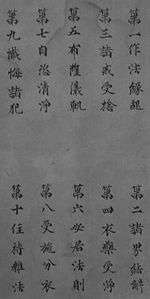 第一作法緣起
第二諸界結解
第三諸戒受捨
第四衣藥受淨
第五布薩儀軌
第六安居法則
第七自恣清淨
第八受施分衣
第九懺悔諸犯
第十住持雜法